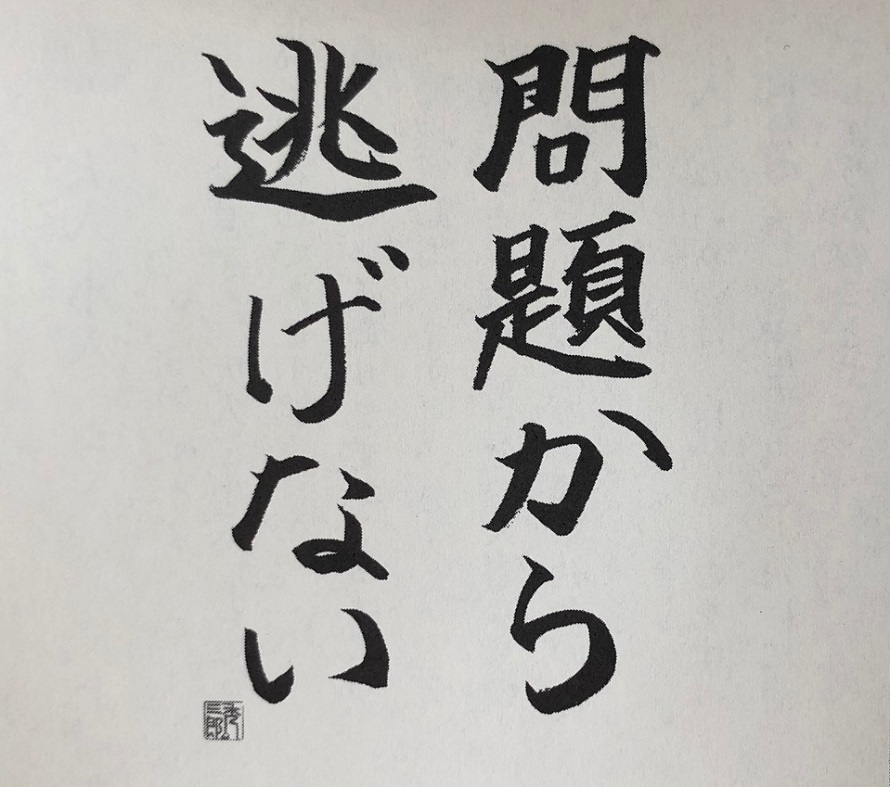 問題から
逃げない